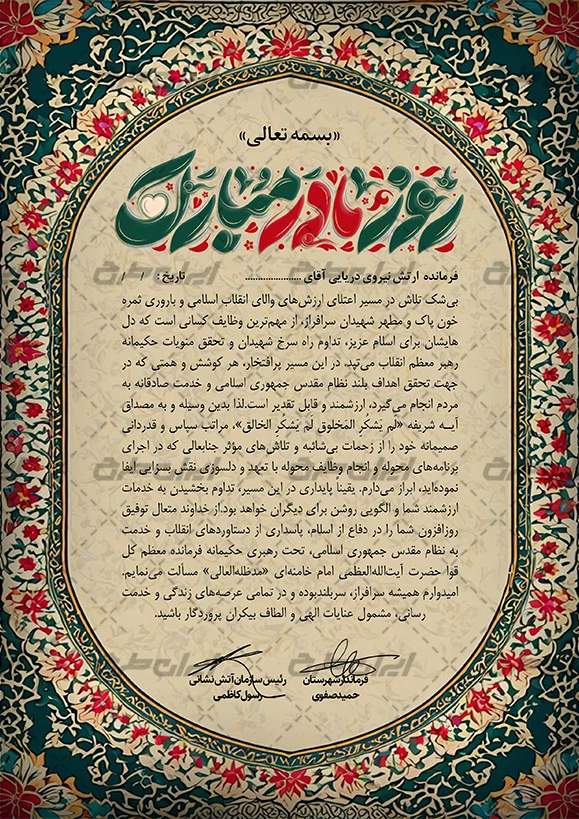 «بسمه تعالی»
روز مادر مبارک
فرمانده ارتش نیروی دریایی آقای ...................... تاریخ: / /
بی‌شک تلاش در مسیر اعتلای ارزش‌های والای انقلاب اسلامی و باروری ثمره
خون پاک و مطهر شهیدان سرافراز، از مهم‌ترین وظایف کسانی است که دل
هایشان برای اسلام عزیز، تداوم راه سرخ شهیدان و تحقق منویات حکیمانه
رهبر معظم انقلاب می‌تپد. در این مسیر پرافتخار، هر کوشش و همتی که در
جهت تحقق اهداف بلند نظام مقدس جمهوری اسلامی و خدمت صادقانه به
مردم انجام می‌گیرد، ارزشمند و قابل تقدیر است.لذا بدین وسیله و به مصداق
آیـه شریفه «لَم یَشکُرِ المَخلوق لَم یَشکُرِ الخالق»، مراتب سپاس و قدردانی
صمیمانه خود را از زحمات بی‌شائبه و تلاش‌های مؤثر جنابعالی که در اجرای
برنامه‌های محوله و انجام وظایف محوله با تعهد و دلسوزی نقش بسزایی ایفا
نموده‌اید، ابراز می‌دارم. یقیناً پایداری در این مسیر، تداوم بخشیدن به خدمات
ارزشمند شما و الگویی روشن برای دیگران خواهد بود.از خداوند متعال توفیق
روزافزون شما را در دفاع از اسلام، پاسداری از دستاوردهای انقلاب و خدمت
به نظام مقدس جمهوری اسلامی، تحت رهبری حکیمانه فرمانده معظم کل
قوا حضرت آیت‌الله‌العظمی امام خامنه‌ای «مدظله‌العالی» مسألت می‌نمایم.
امیدوارم همیشه سرافراز، سربلندبوده و در تمامی عرصه‌های زندگی و خدمت
رسانی، مشمول عنایات الهی و الطاف بیکران پروردگار باشید.
فرماندارشهرستان
حمیدصفوی
رئیس سازمان آتش نشانی
رسول کاظمی
ایران طرح